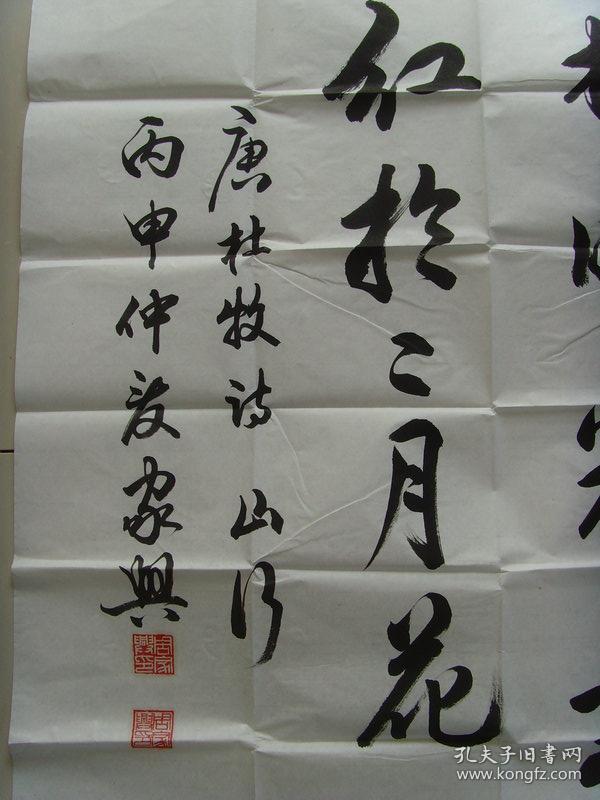 红於二月花
唐杜牧诗 山行
丙申仲夏家興
周家興印
孔夫子旧书网
www.kongfz.com